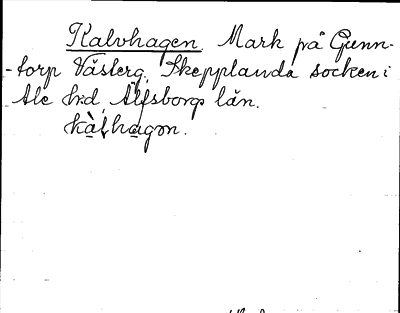 Kalvhagen. Mark på Gunn-
-torp Västerg. Skepplanda socken i
Ale hd, Älfsborgs län.